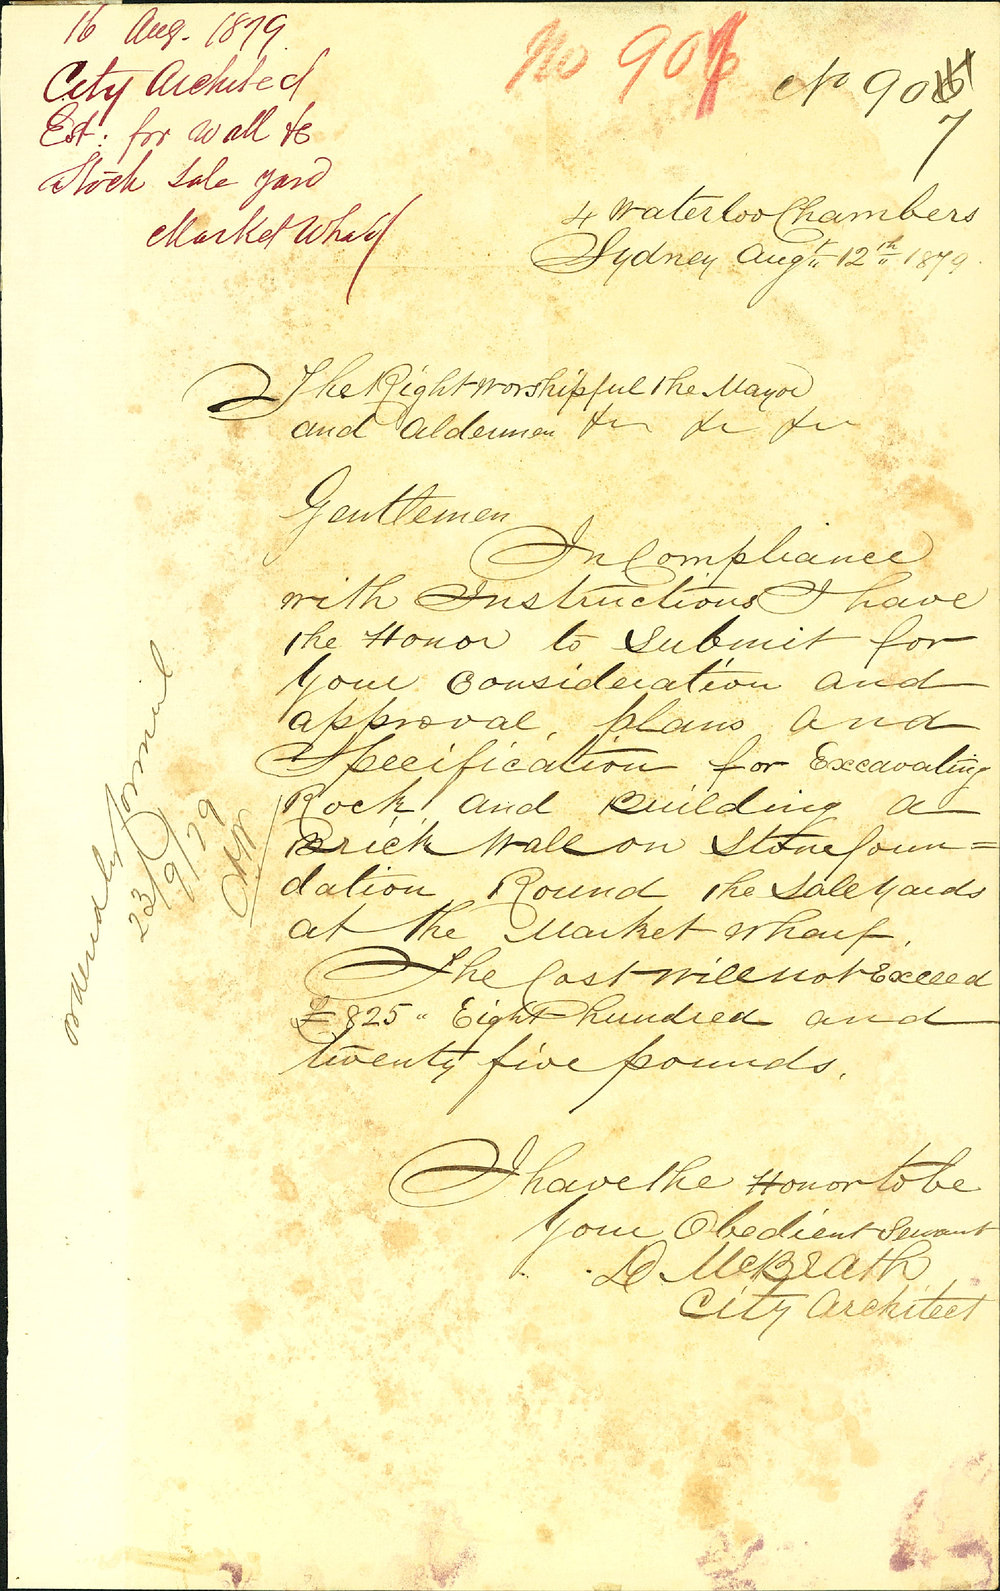 16 Aug. 1879.
City Architect
Est: for Wall &c
Stock Sale yard
Market Wharf
No 907
No 907
4 Waterloo Chambers
Sydney Augt 12th 1879.
The Right Worshipful the Mayor
and Aldermen &c &c &c
Gentlemen
In Compliance
with Instructions I have
the Honor to Submit for
Your Consideration and
approval, plans and
Specification for Excavating
Rock, and Building a
Brick Wall on Stone foun=
dation Round the Sale Yards
at the Market Wharf.
The Cost will not Exceed
£825 " Eight hundred and
twenty five pounds.
I have the Honor to be
Your Obedient Servant
D. McBeath
City Architect
Ordered by
23/9/79